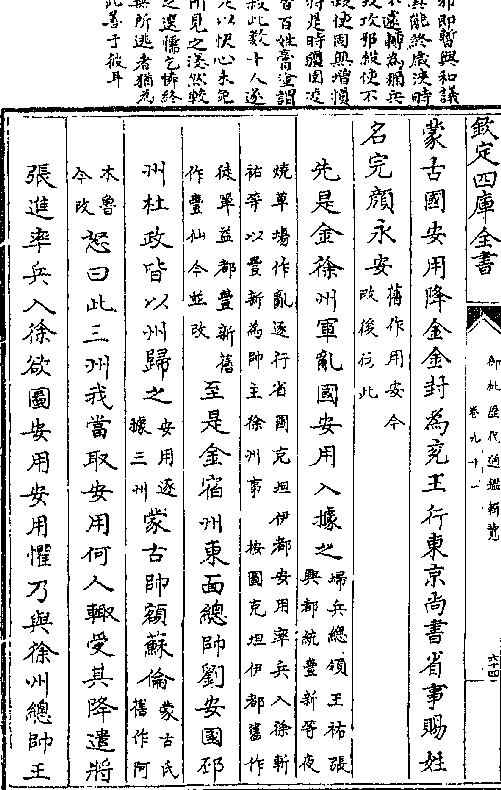 邪即暫與和議
替百姓膏塗謂
殺此數十人遂
足以快心未免
所見之淺然較
之選懦乞憐終
無所逃者猶為
此善于彼耳
欽定四庫全書
御批歷代通鑑輯覽
卷九十一
六十四
蒙古國安用降金金封為兗王行東京尚書省事賜姓
名完顔永安舊作用安今改後仿此
先是金徐州軍亂國安用入據之埽兵總領王祐張興都統豐新等夜
燒草場作亂逐行省圖克坦伊都安用率兵入徐斬祐等以豐新為帥主徐州事 按圖克坦伊都舊作
徒單益都豐新舊作豐仙今並改至是金宿州東面總帥劉安國邳
州杜政皆以州歸之安用遂據三州蒙古帥額蘇倫蒙古氏舊作阿
木魯今改怒曰此三州我當取安用何人輒受其降遣將
張進率兵入徐欲圖安用安用懼乃與徐州總帥王